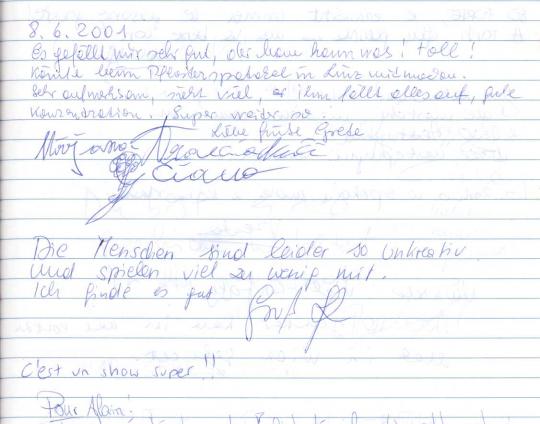 8. 6. 2001
Es gefällt mir sehr gut, der Mann kann was! Toll!
Könnte beim Pflasterspektakel in Linz mitmachen.
Sehr aufmerksam, sieht viel, ihm fällt alles auf, gute
Konzentration. Super weiter so!
Liebe Grüße Grete
Die Menschen sind leider so unkreativ
und spielen viel zu wenig mit.
Ich finde es gut
Gruß
C'est un show super!!
Pour Alain: